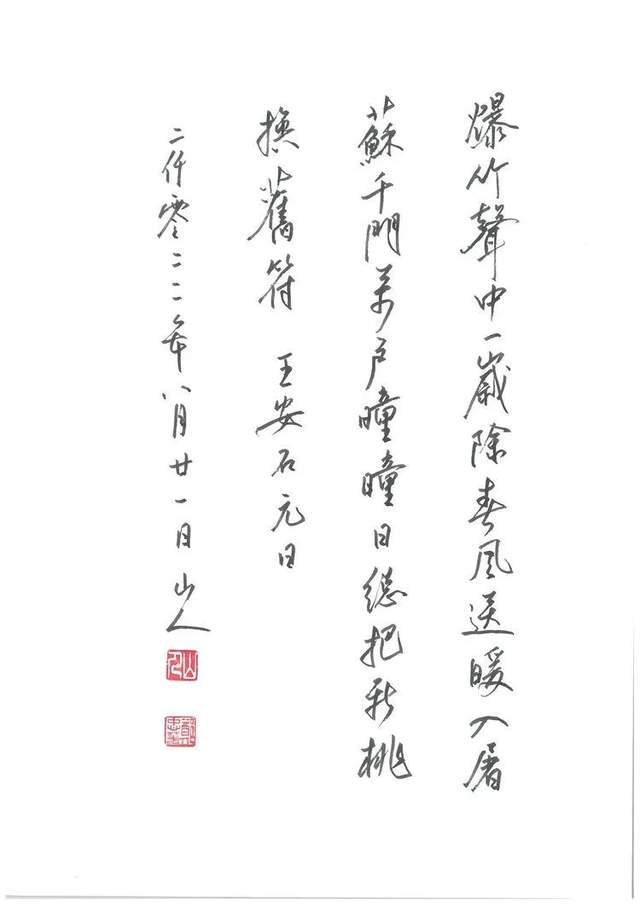 爆竹聲中一歲除春風送暖入屠
蘇千門萬戶曈曈日總把新桃
換舊符 王安石元日
二仟零二二年八月廿一日山人
山人